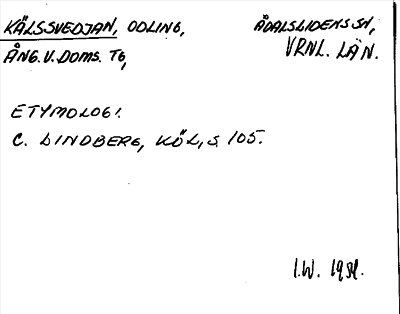 KÄLSSVEDJAN, ODLING, ÅDALSLIDENS SN,
ÅNG. V. DOMS. TG, VRNL. LÄN.
ETYMOLOGI.
C. LINDBERG, KÖL, S. 105.
I.W.